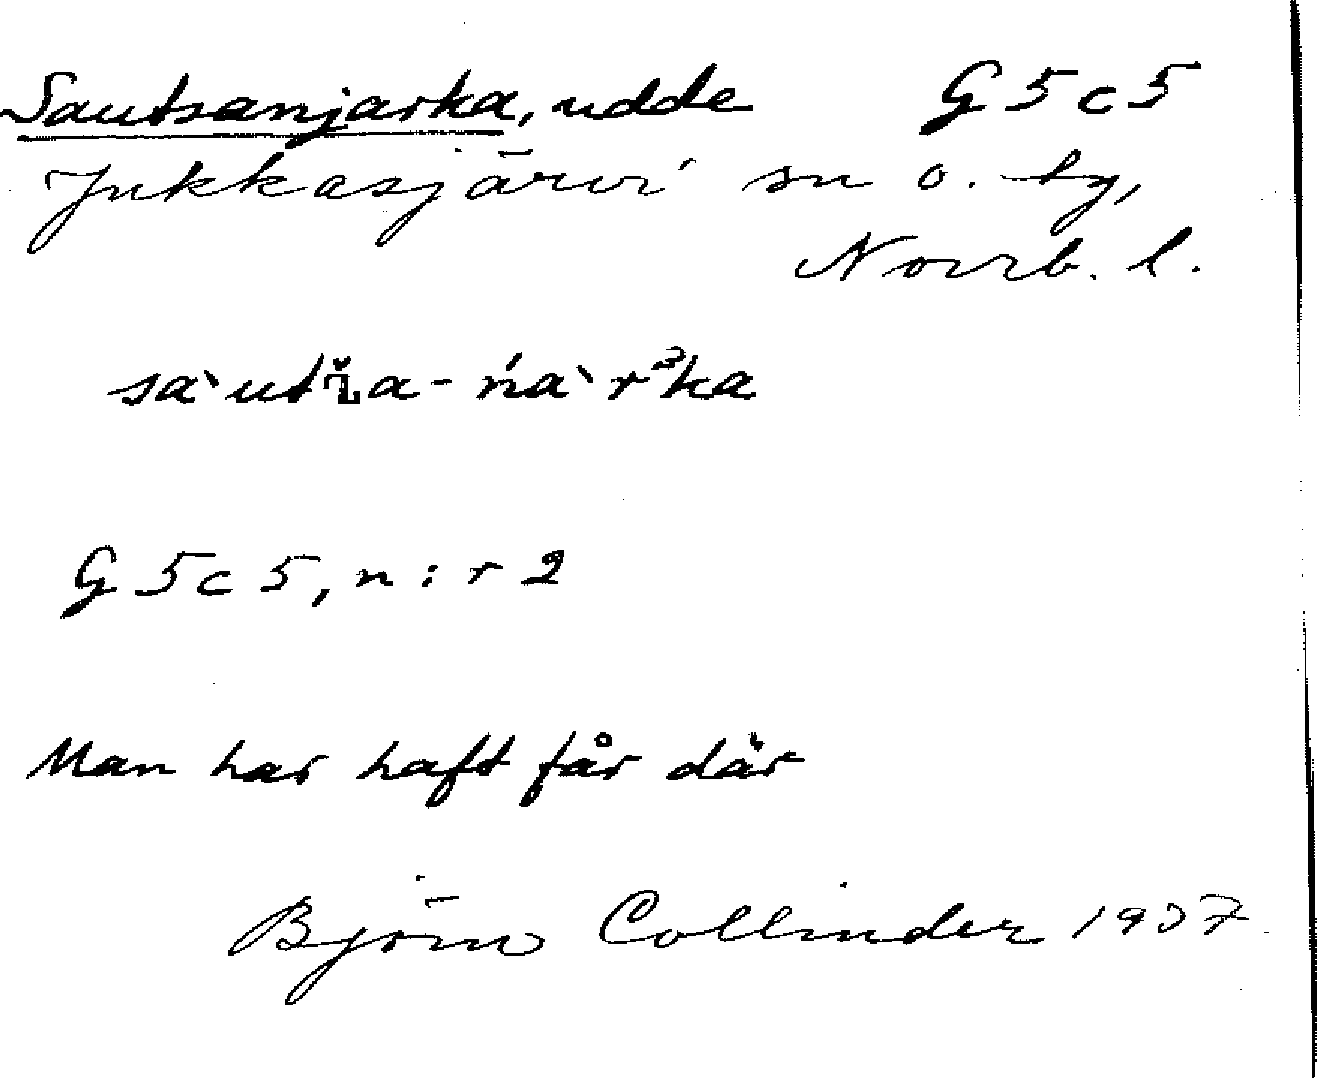 Sautsanjarka, udde G 5 c 5
Jukkasjärvi sn o. tg,
Norrb. l.
sàutᶎ̌a-ńàrᵊka
G 5 c 5, n:r 2
Man har haft får där
Björn Collinder 1937